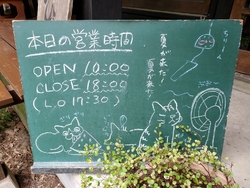 本日の営業時間
OPEN 10:00
CLOSE 18:00
(L.O 17:30)
夏が来た!
夏が来た
ちりん